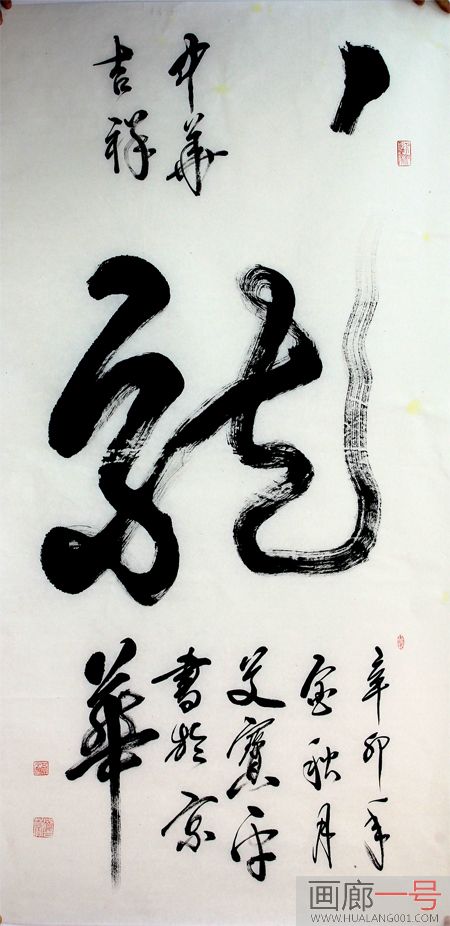 中華
吉祥
龍
辛卯年
金秋月
寶平
書於京
華
画廊一号
WWW.HUALANG001.COM